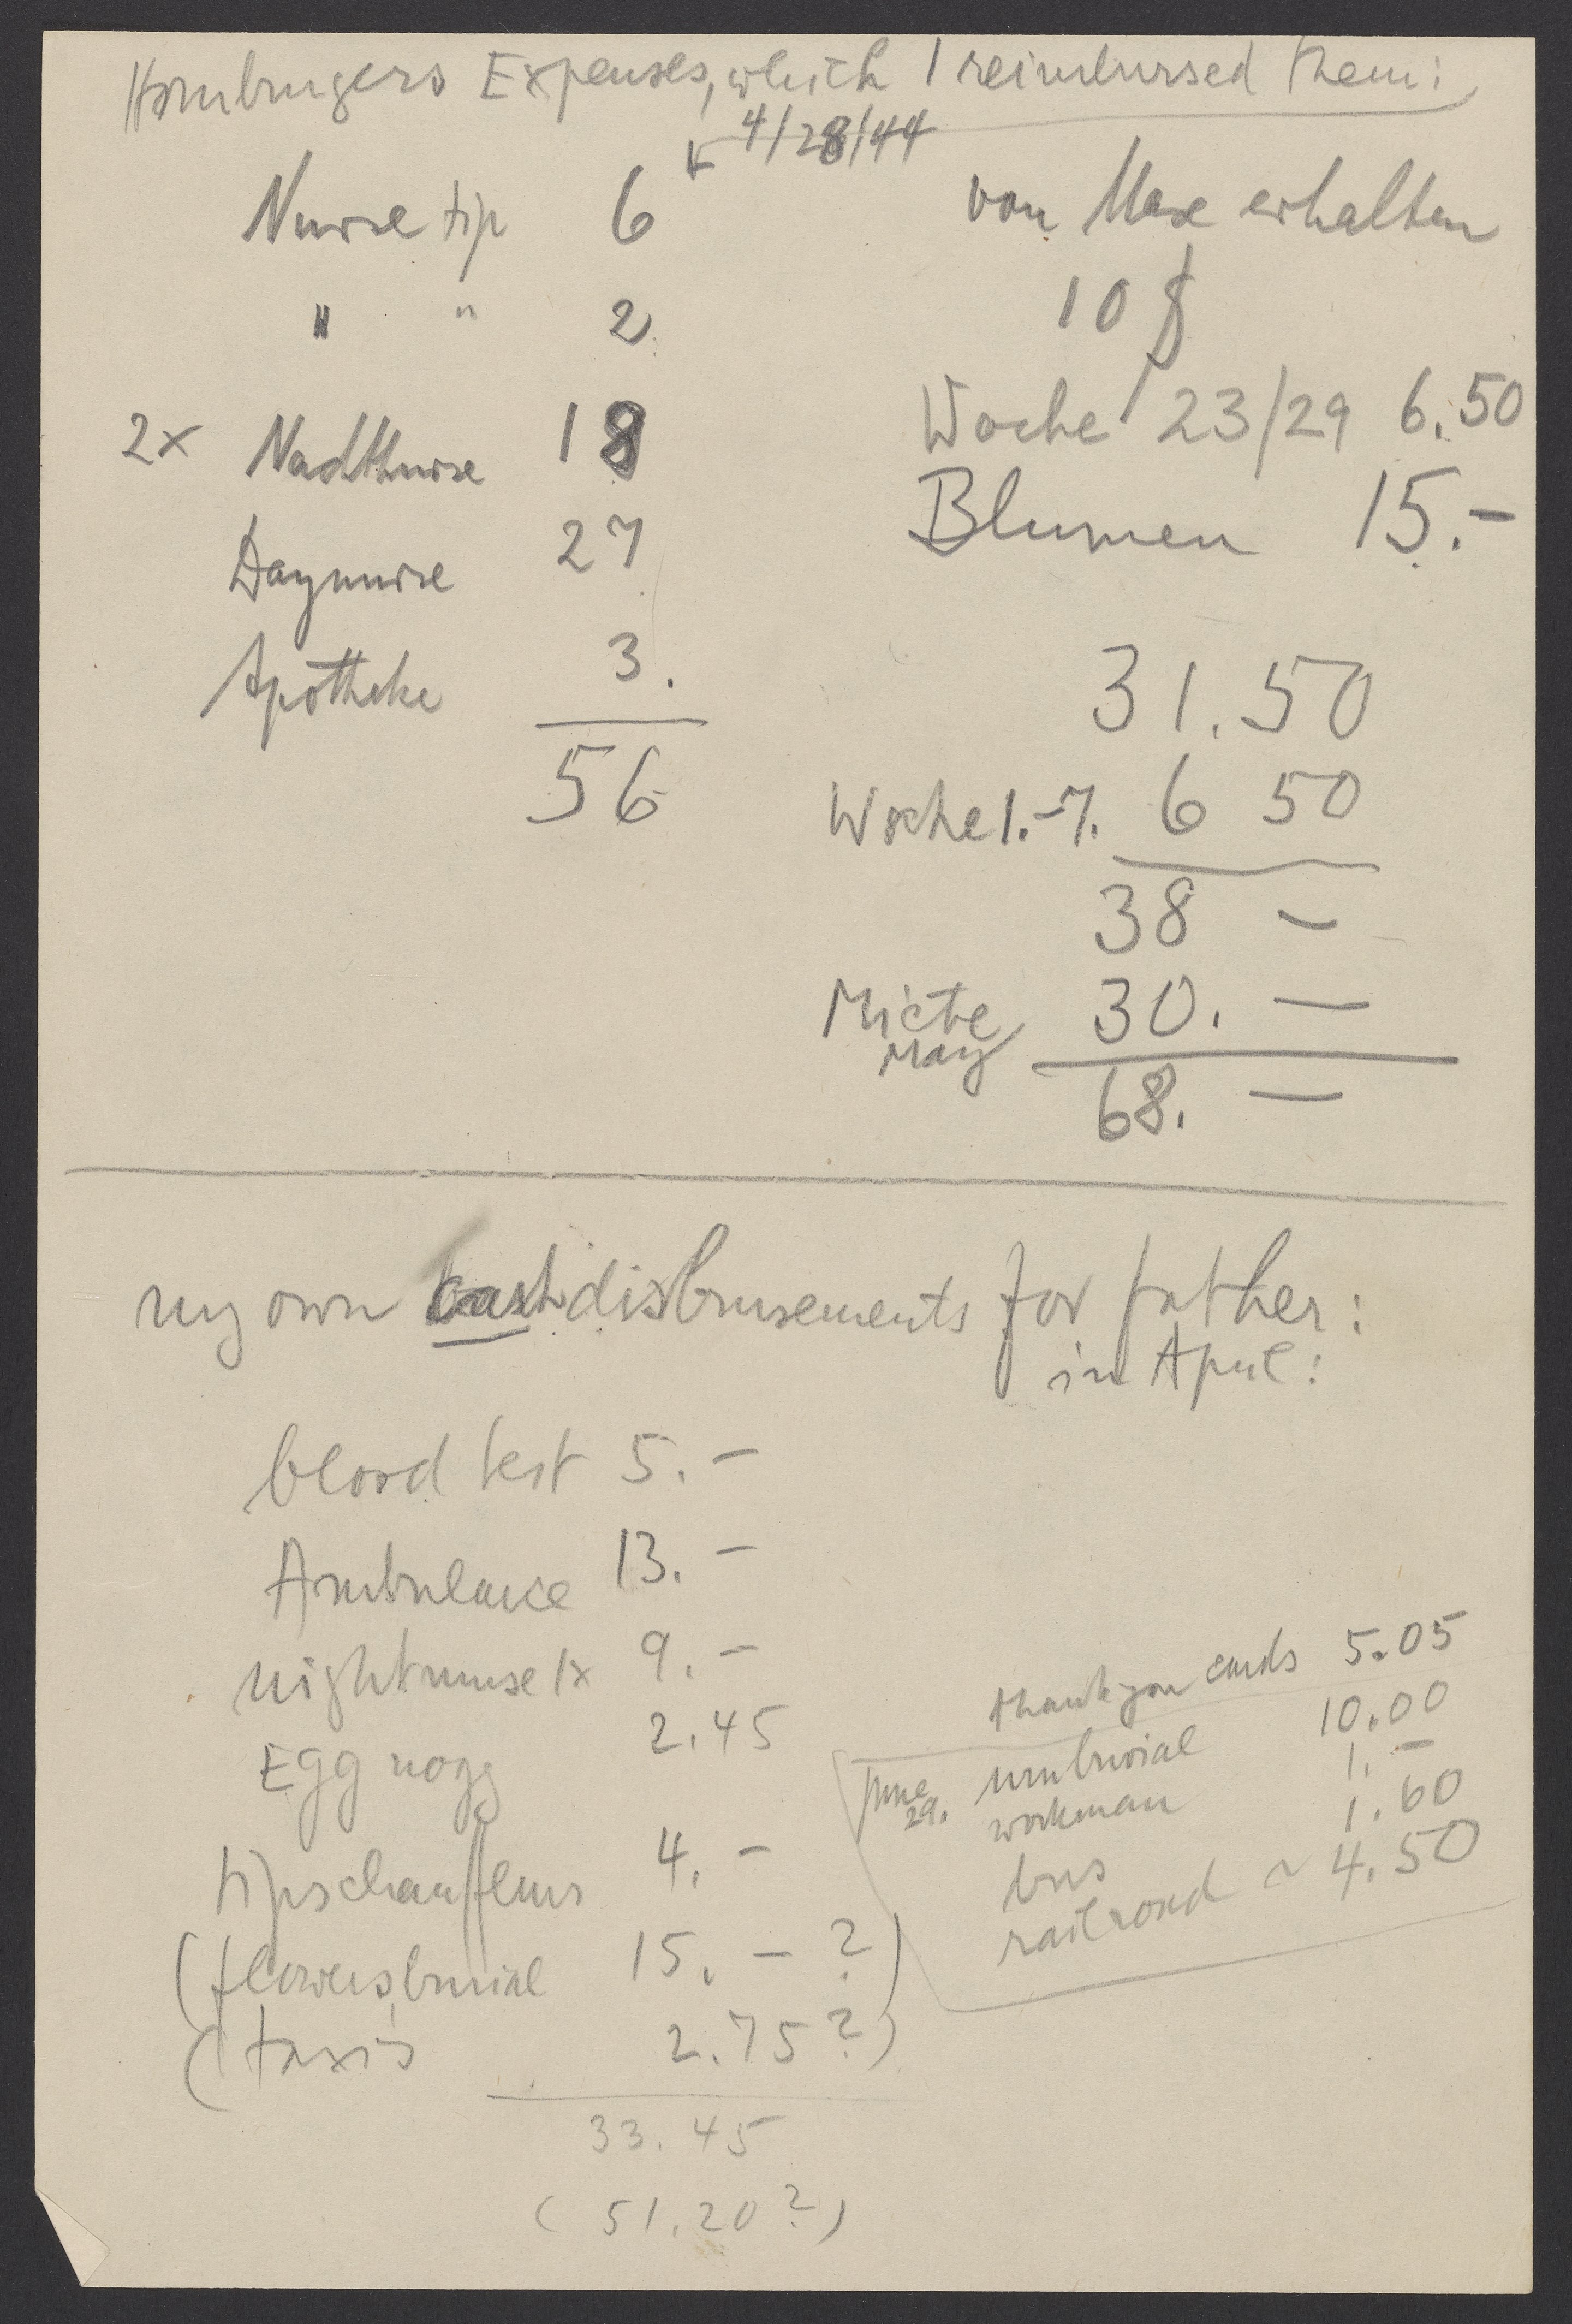 Hombugers Expenses, which I reimbursed them:
4/28/44
Nurse tip 6
" " 2
2x Nachtnurse 18
Daynurse 27
Apotheke 3.
56
von Max erhalten
10 $
Woche 23/29 6.50
Blumen 15.-
31.50
Woche 1.-7. 6 50
38 -
Miete May 30. -
68. -
my own cash disbursements for father:
in April:
blood test 5. -
Ambulance 13. -
nightnurse 1x 9. -
Egg nogg 2.45
tips chauffeur 4. -
(flowers, burial 15. - ?)
(taxis 2.75 ?)
33.45
(51.20 ?)
thank you cards 5.05
June 29. urnburial 10.00
workman 1. -
bus 1.60
railroad ~ 4.50